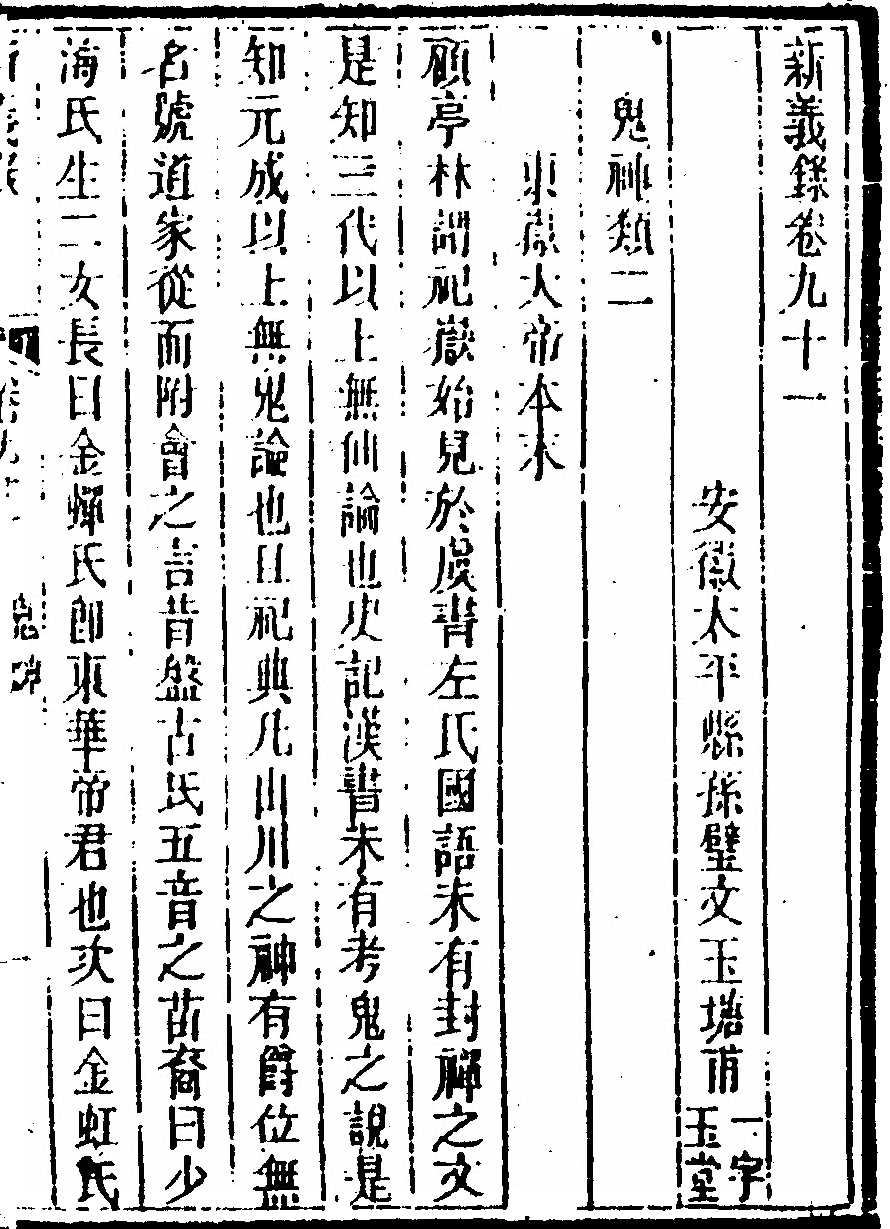 新義錄卷九十一
安徽太平縣孫璧文玉塘甫一字玉堂
鬼神類二
東嶽大帝本末
顧亭林謂祀嶽始見於虞書左氏國語未有封禪之文
是知三代以上無仙論也史記漢書未有考鬼之說是
知元成以上無鬼論也且祀典凡山川之神有爵位無
名號道家從而附會之言昔盤古氏五音之苗裔曰少
海氏生二女長曰金蟬氏卽東華帝君也次曰金虹氏